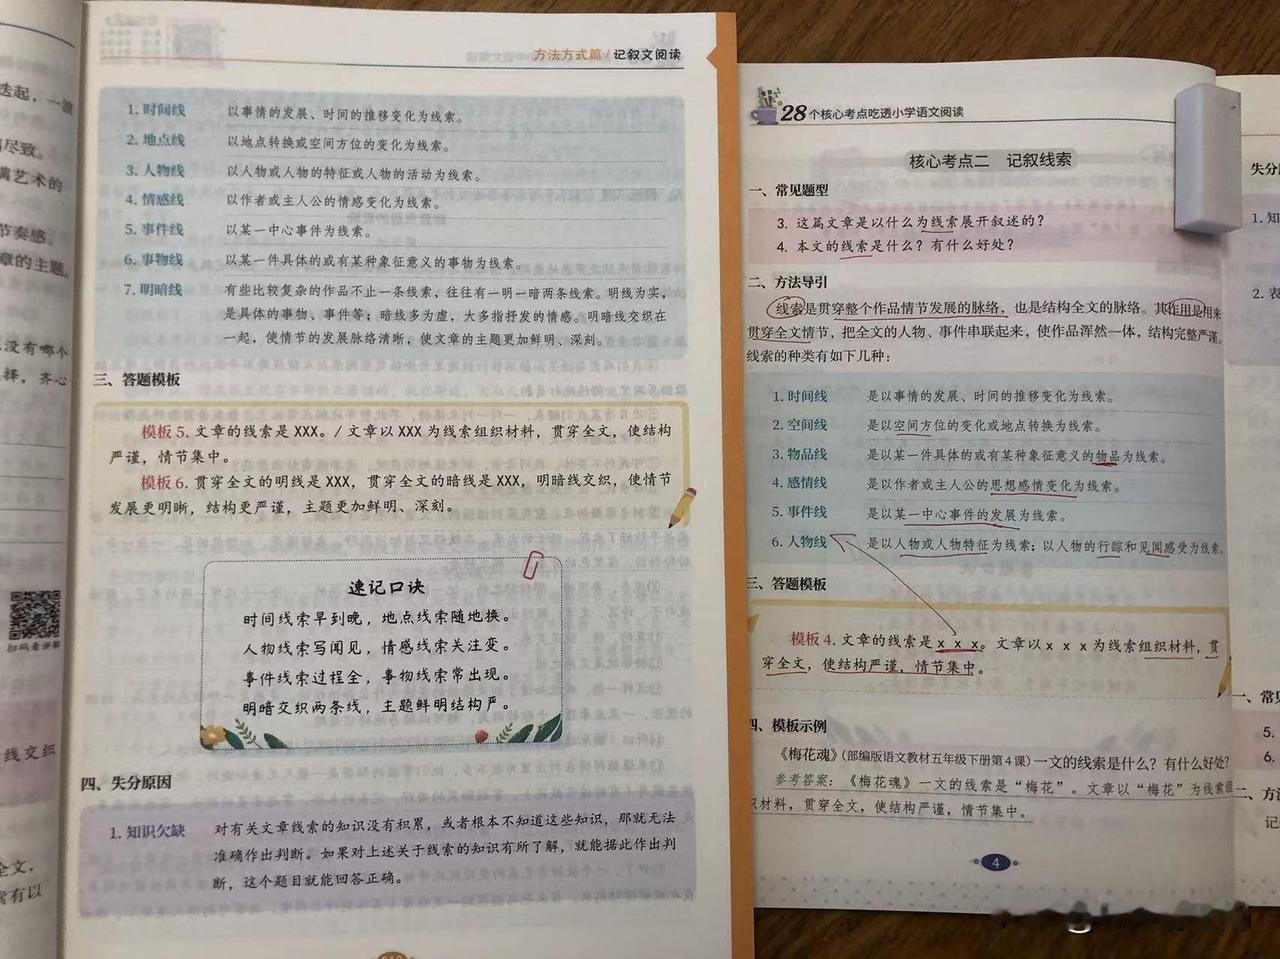 迭起，一波
尽致。
满艺术的
节奏感。
章的主题。
没有哪个
择，齐心
扫码看讲解
线交织
全文，
索有以
方法方式篇/记叙文阅读
1. 时间线 以事情的发展、时间的推移变化为线索。
2. 地点线 以地点转换或空间方位的变化为线索。
3. 人物线 以人物或人物的特征或人物的活动为线索。
4. 情感线 以作者或主人公的情感变化为线索。
5. 事件线 以某一中心事件为线索。
6. 事物线 以某一件具体的或有某种象征意义的事物为线索。
7. 明暗线 有些比较复杂的作品不止一条线索，往往有一明一暗两条线索。明线为实，
是具体的事物、事件等；暗线多为虚，大多指抒发的情感。明暗线交织在
一起，使情节的发展脉络清晰，使文章的主题更加鲜明、深刻。
三、答题模板
模板 5. 文章的线索是 XXX。/ 文章以 XXX 为线索组织材料，贯穿全文，使结构
严谨，情节集中。
模板 6. 贯穿全文的明线是 XXX，贯穿全文的暗线是 XXX，明暗线交织，使情节
发展更明晰，结构更严谨，主题更加鲜明、深刻。
速记口诀
时间线索早到晚，地点线索随地换。
人物线索写闻见，情感线索关注变。
事件线索过程全，事物线索常出现。
明暗交织两条线，主题鲜明结构严。
四、失分原因
1. 知识欠缺 对有关文章线索的知识没有积累，或者根本不知道这些知识，那就无法
准确作出判断。如果对上述关于线索的知识有所了解，就能据此作出判
断，这个题目就能回答正确。
28个核心考点吃透小学语文阅读
核心考点二 记叙线索
一、常见题型
3. 这篇文章是以什么为线索展开叙述的？
4. 本文的线索是什么？有什么好处？
二、方法导引
线索是贯穿整个作品情节发展的脉络，也是结构全文的脉络。其作用是用来
贯穿全文情节，把全文的人物、事件串联起来，使作品浑然一体，结构完整严谨。
线索的种类有如下几种：
1. 时间线 是以事情的发展、时间的推移变化为线索。
2. 空间线 是以空间方位的变化或地点转换为线索。
3. 物品线 是以某一件具体的或有某种象征意义的物品为线索。
4. 感情线 是以作者或主人公的思想感情变化为线索。
5. 事件线 是以某一中心事件的发展为线索。
6. 人物线 是以人物或人物特征为线索；以人物的行踪和见闻感受为线索。
三、答题模板
模板 4. 文章的线索是 x x x。文章以 x x x 为线索组织材料，贯
穿全文，使结构严谨，情节集中。
四、模板示例
《梅花魂》（部编版语文教材五年级下册第 4 课）一文的线索是什么？有什么好处？
参考答案：《梅花魂》一文的线索是“梅花”。文章以“梅花”为线索组
织材料，贯穿全文，使结构严谨，情节集中。
4
失分
1. 知
2. 表
一、常见
5.
6.
二、方法
记